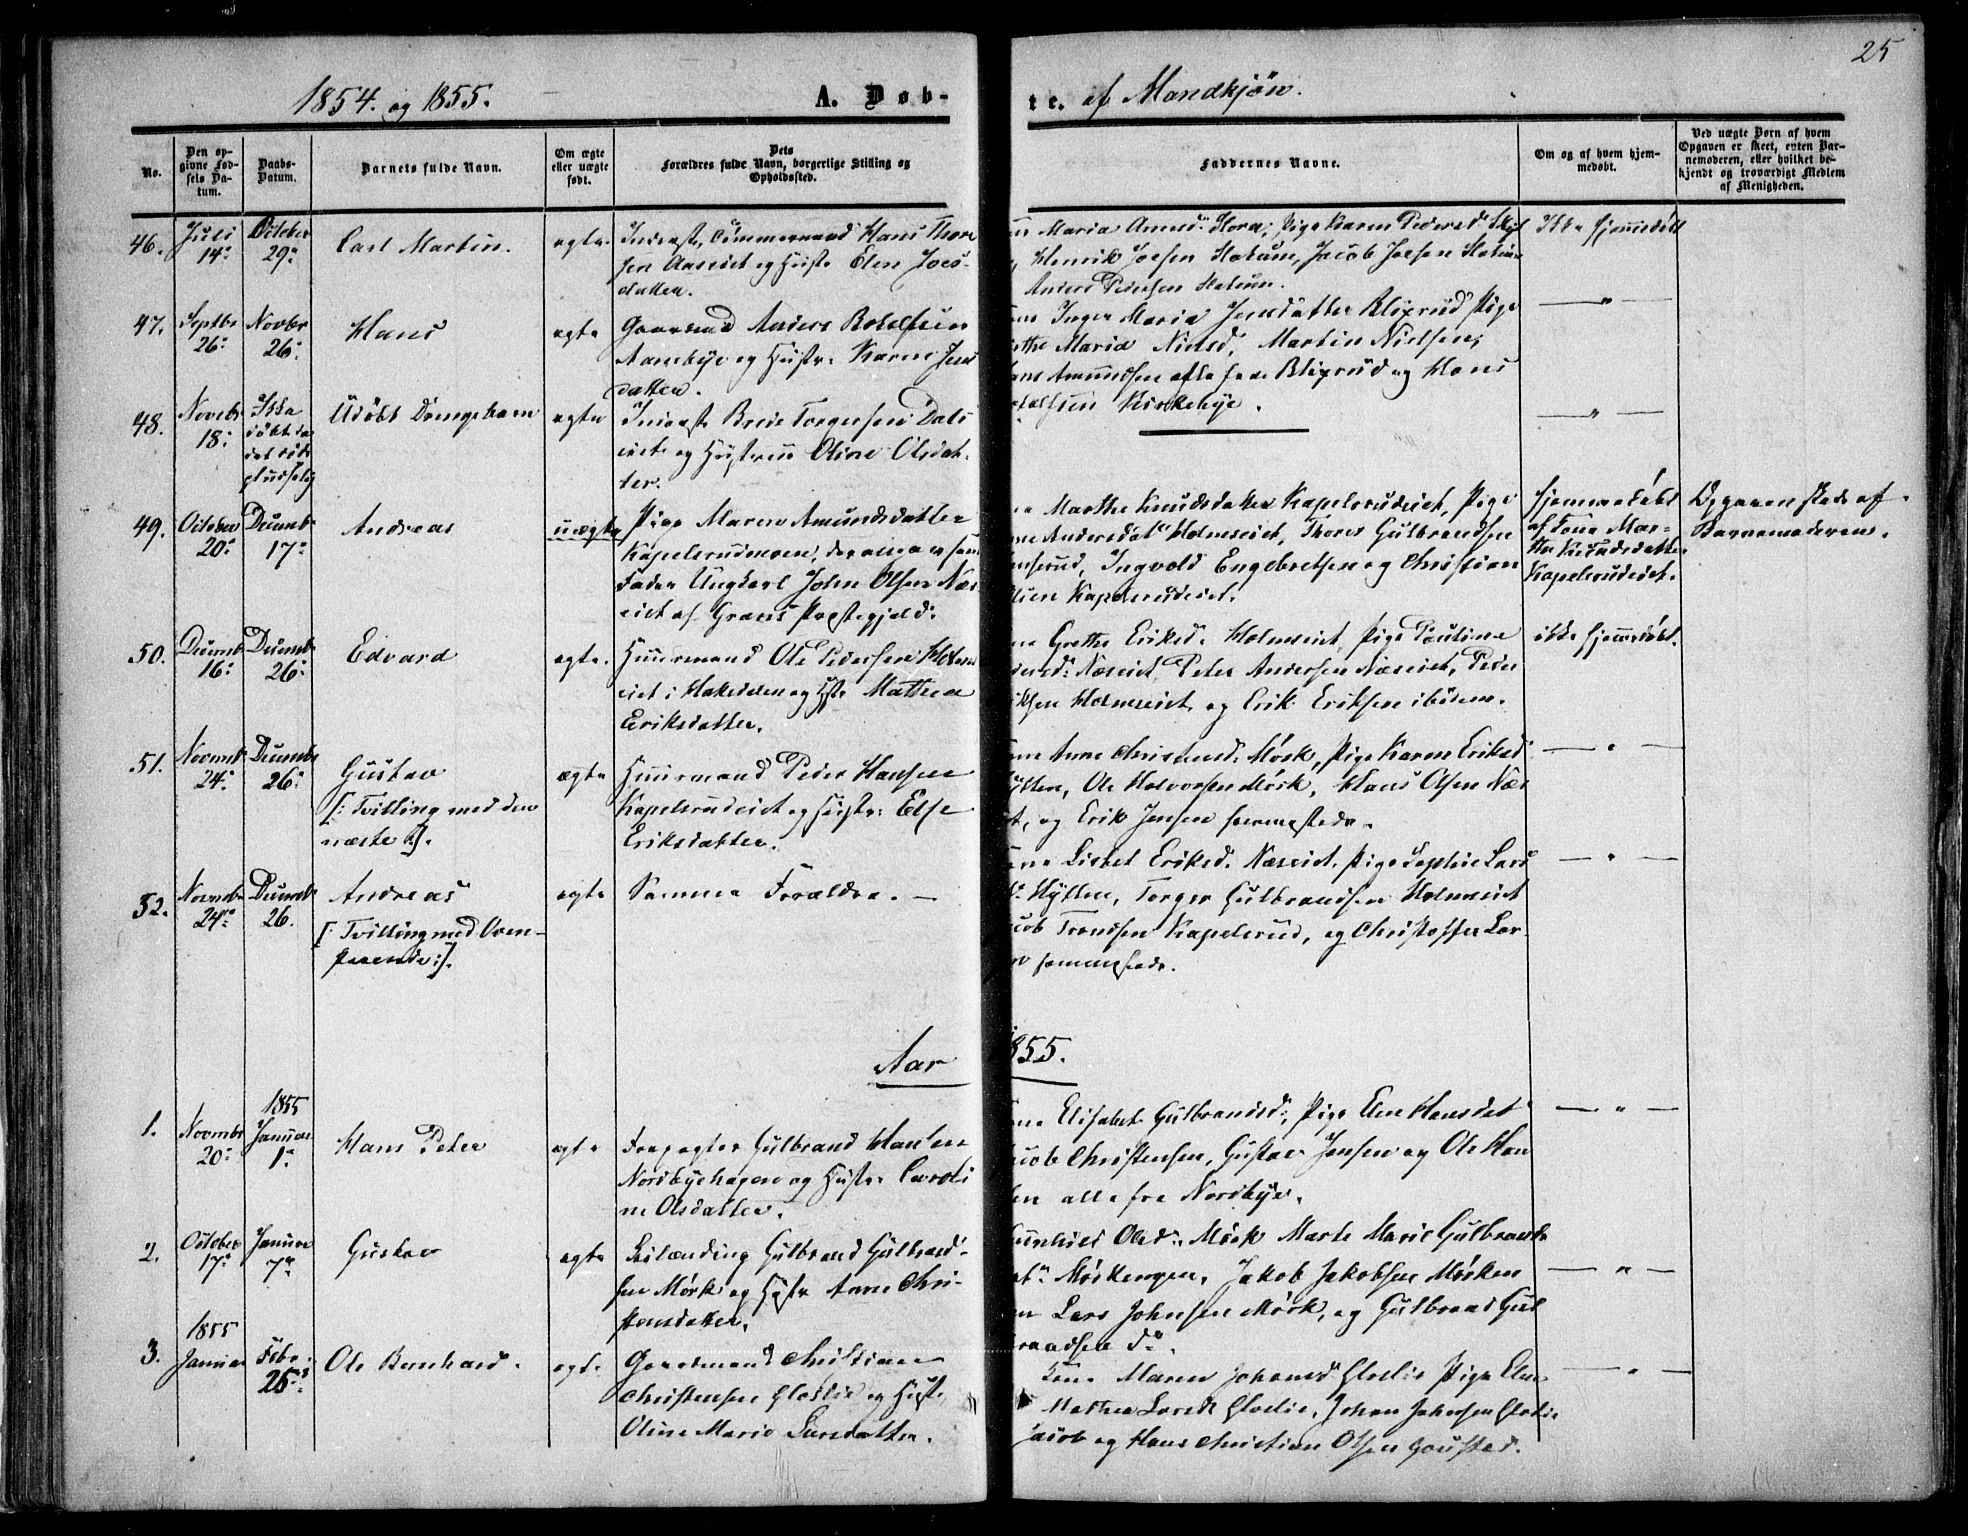 25
1854. og 1855.
A. Døb-
te. af Mandkjøn.
No.
Den op-
givne Fød-
sels Da-
tum.
Daabs-
Datum.
Barnets fulde Navn.
Om ægte
eller uægte
født.
Dets
Forældres fulde Navn, borgerlige Stilling og
Opholdssted.
Faddernes Navne.
Om og af hvem hjem-
medøbt.
Ved uægte Børn af hvem
Opgaven er skeet, enten Bar-
nemoderen, eller hvilket be-
kjendt og troværdigt Medlem
af Menigheden.
46.
Juli
14
October
29
Carl Martin.
ægte.
Inderst, Tømmermand Hans Thor
sen Aaseiet og Hustr Elen Joes-
datter.
Maria Amund. Hora; Pige Karen Pedersd
Henrik Joesen Slatum, Jacob Joesen Slatum
Anders Pedersen Slatum.
Ikke hjemmedøbt
47.
Septbr
26
Novbr
26
Hans
ægte
Gaardmd Anders Rolefsen
og Hustr. Karen Jens
datter.
Inger Maria Jensdatter Blixrud Pige
the Maria Nielsd, Martin Nielsen,
Amundsen alle fra Blixrud og Hans
Kirkebye.
— " —
48.
Novebr
18
Ikke
døbt da
det døde
pludselig
Udøbt Drengebarn
ægte
Inderst Brede Torgersen Dals
eiet og Hustru Oline Olsdat-
ter.
— " —
49.
October
20
Decemb
17
Andreas
uægte
Pige Maren Amundsdatter
Kapelsrudmoen, der angav som
Fader Ungkarl John Olsen Næs
eiet af Grans Præstegjeld.
Marthe Knudsdatter Kapelsrudeiet, Pige
ne Andersdat Holmseiet, Thorer Gulbrandsen
Ingvold Engebretsen og Christian
Kapelsrudeiet.
hjemmedøbt
af Kone Mar-
the Knudsdatter
Kapelsrudeiet.
Opgaven skede af
Barnemoderen.
50.
Decemb
16
Decemb
26
Edvard
ægte.
Huusmand Ole Pedersen Holms
eiet i Hakedalen og Hstr Mathea
Eriksdatter.
Grethe Eriksd. Holmseiet, Pige Pauline
Næseiet, Peter Andersen Næseiet, Peder
Holmseiet og Erik Eriksen ibidem.
ikke hjemmedøbt.
51.
Novemb
24
Decembr
26
Gustav
[: Tvilling med den
næste :].
ægte
Huusmand Peder Hansen
Kapelsrudeiet og Hustr: Else
Eriksdatter.
Anne Christensd. Mørk, Pige Karen Eriksd
Hytten, Ole Halvorsen Mørk, Hans Olsen Næs
t, og Erik Jensen sammesteds.
— " —
52.
Novembr
24
Decemb
26.
Andreas
[: Tvilling med Oven-
staaende :].
ægte
Samme Forældre. —
Lisbet Eriksd. Næseiet, Pige Sophie Lars
Hytten, Torger Gulbrandsen Holmseiet
cob Trondsen Kapelsrud, og Christoffer Lar-
sammesteds.
— " —
Aar
855.
1.
Novmbr
20
1855
Januar
1
Hans Peter
ægte
Forpagter Gulbrand Hansen
Nordbyehagen og Hustr. Caroli
ne Olsdatter.
Elisabet Gulbrandsd; Pige Elen Hansdat
acob Christensen, Gustav Jensen og Ole Han
sen alle fra Nordbye.
— " —
2.
October
17
Januar
7
Gustav
ægte
Leilænding Gulbrand Gulbrand-
sen Mørk og Hstr Anne Chri-
stensdatter.
Gunhild Olsd. Mørk Marte Marie Gulbrands
dat Mørkengen, Jakob Jakobsen Mørken
Lars Johnsen Mørk, og Gulbrand Gul
brandsen do.
— " —
3.
1855
Januar
Febr.
25
Ole Bernhard.
ægte.
Gaardmand Christian
Christensen Glaslie og Hustr,
Oline Marie Larsdatter.
Kone Maren Johansd Glaslie Pige Elen
Mathea Larsd Glaslie, Johan Johansen Glaslie
Jacob og Hans Christian Olsen Gousted.
— " —